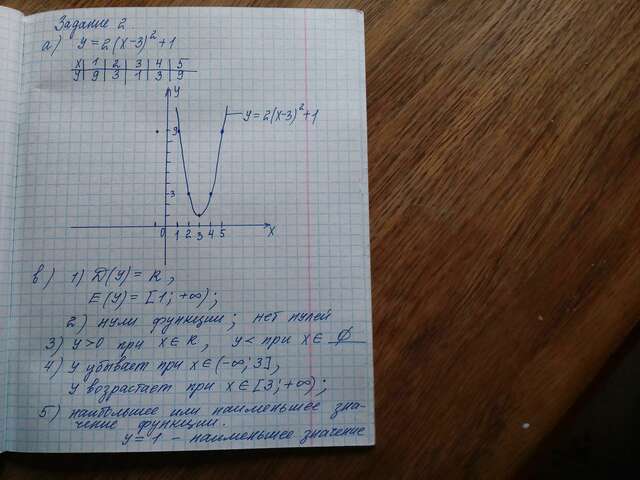 Задание 2
а) y = 2(x-3)²+1
x 1 2 3 4 5
y 9 3 1 3 9
y
y = 2(x-3)²+1
9
3
0 1 2 3 4 5 x
в) 1) D(y) = R,
E(y) = [1; +∞);
2) нули функции; нет нулей
3) y>0 при x∈R, y< при x∈ ∅
4) y убывает при x∈(-∞; 3],
y возрастает при x∈[3; +∞);
5) наибольшее или наименьшее зна-
чение функции.
y = 1 - наименьшее значение